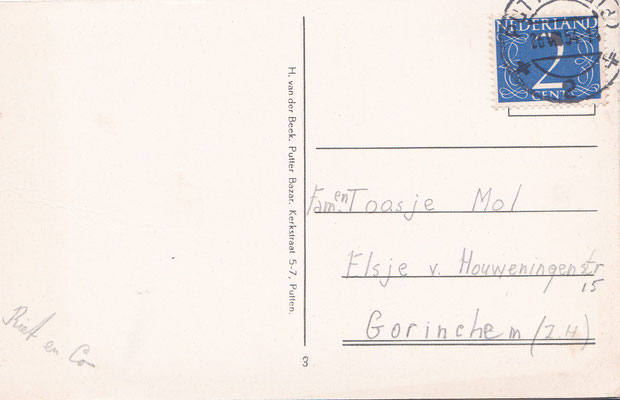 NEDERLAND
2
CENT
H. van der Beek. Putter Bazar. Kerkstraat 5-7, Putten.
Fam. en Toosje Mol
Elsje v. Houweningenstr
15
Gorinchem (Z.H)
Riet en Co
3